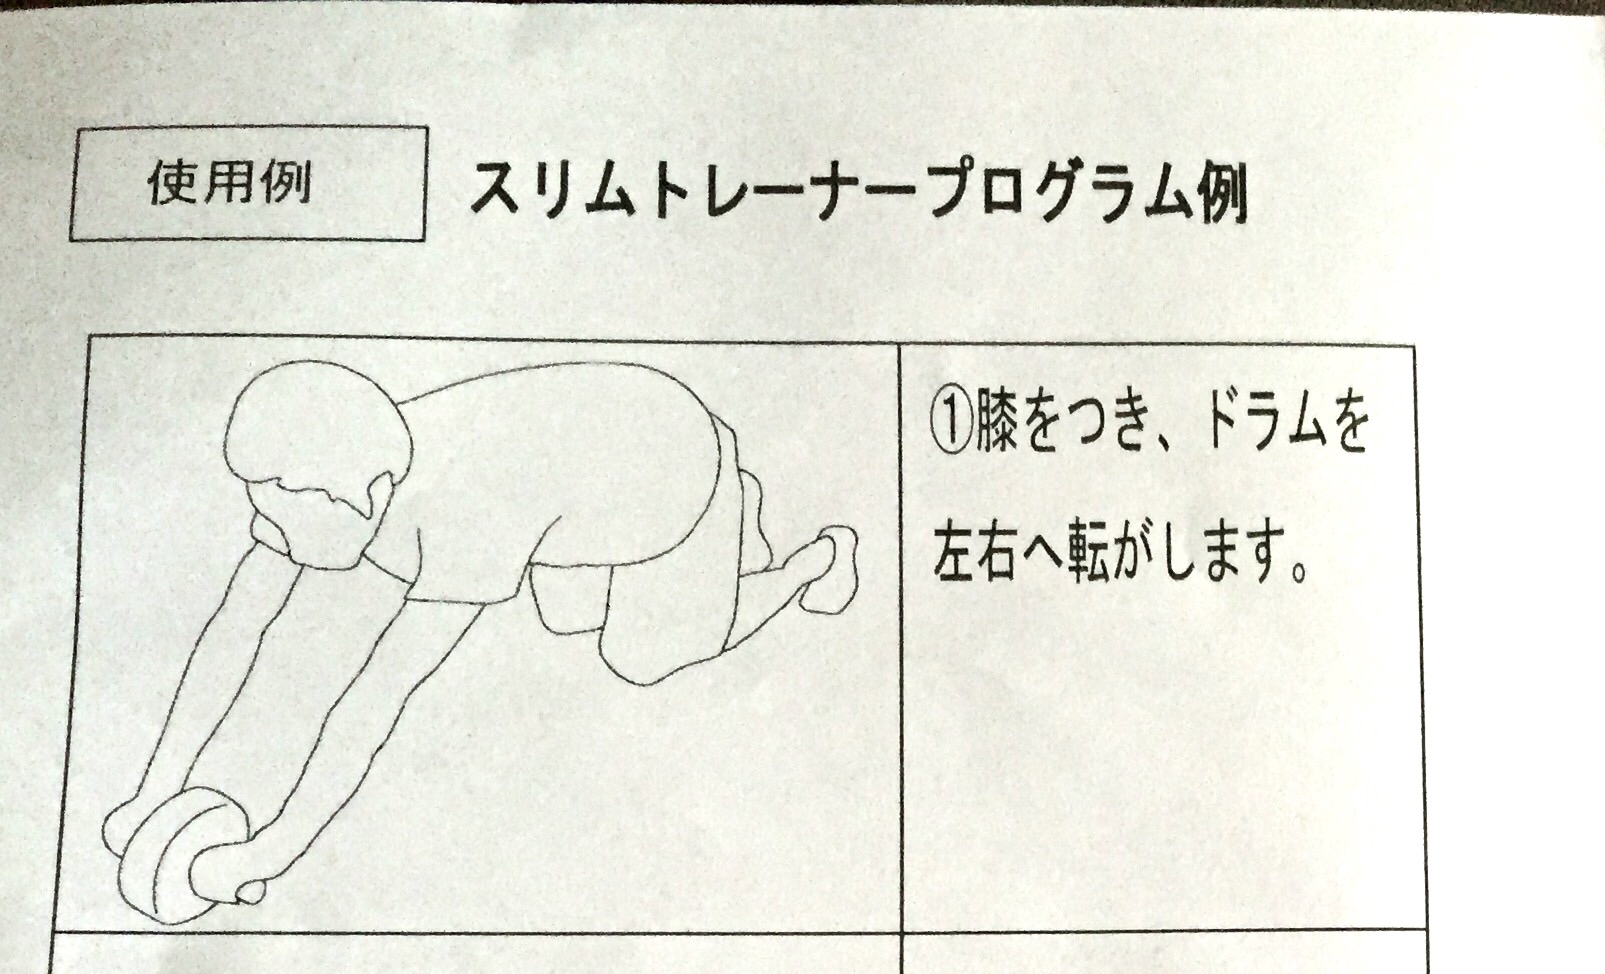 使用例
スリムトレーナープログラム例
①膝をつき、ドラムを
左右へ転がします。